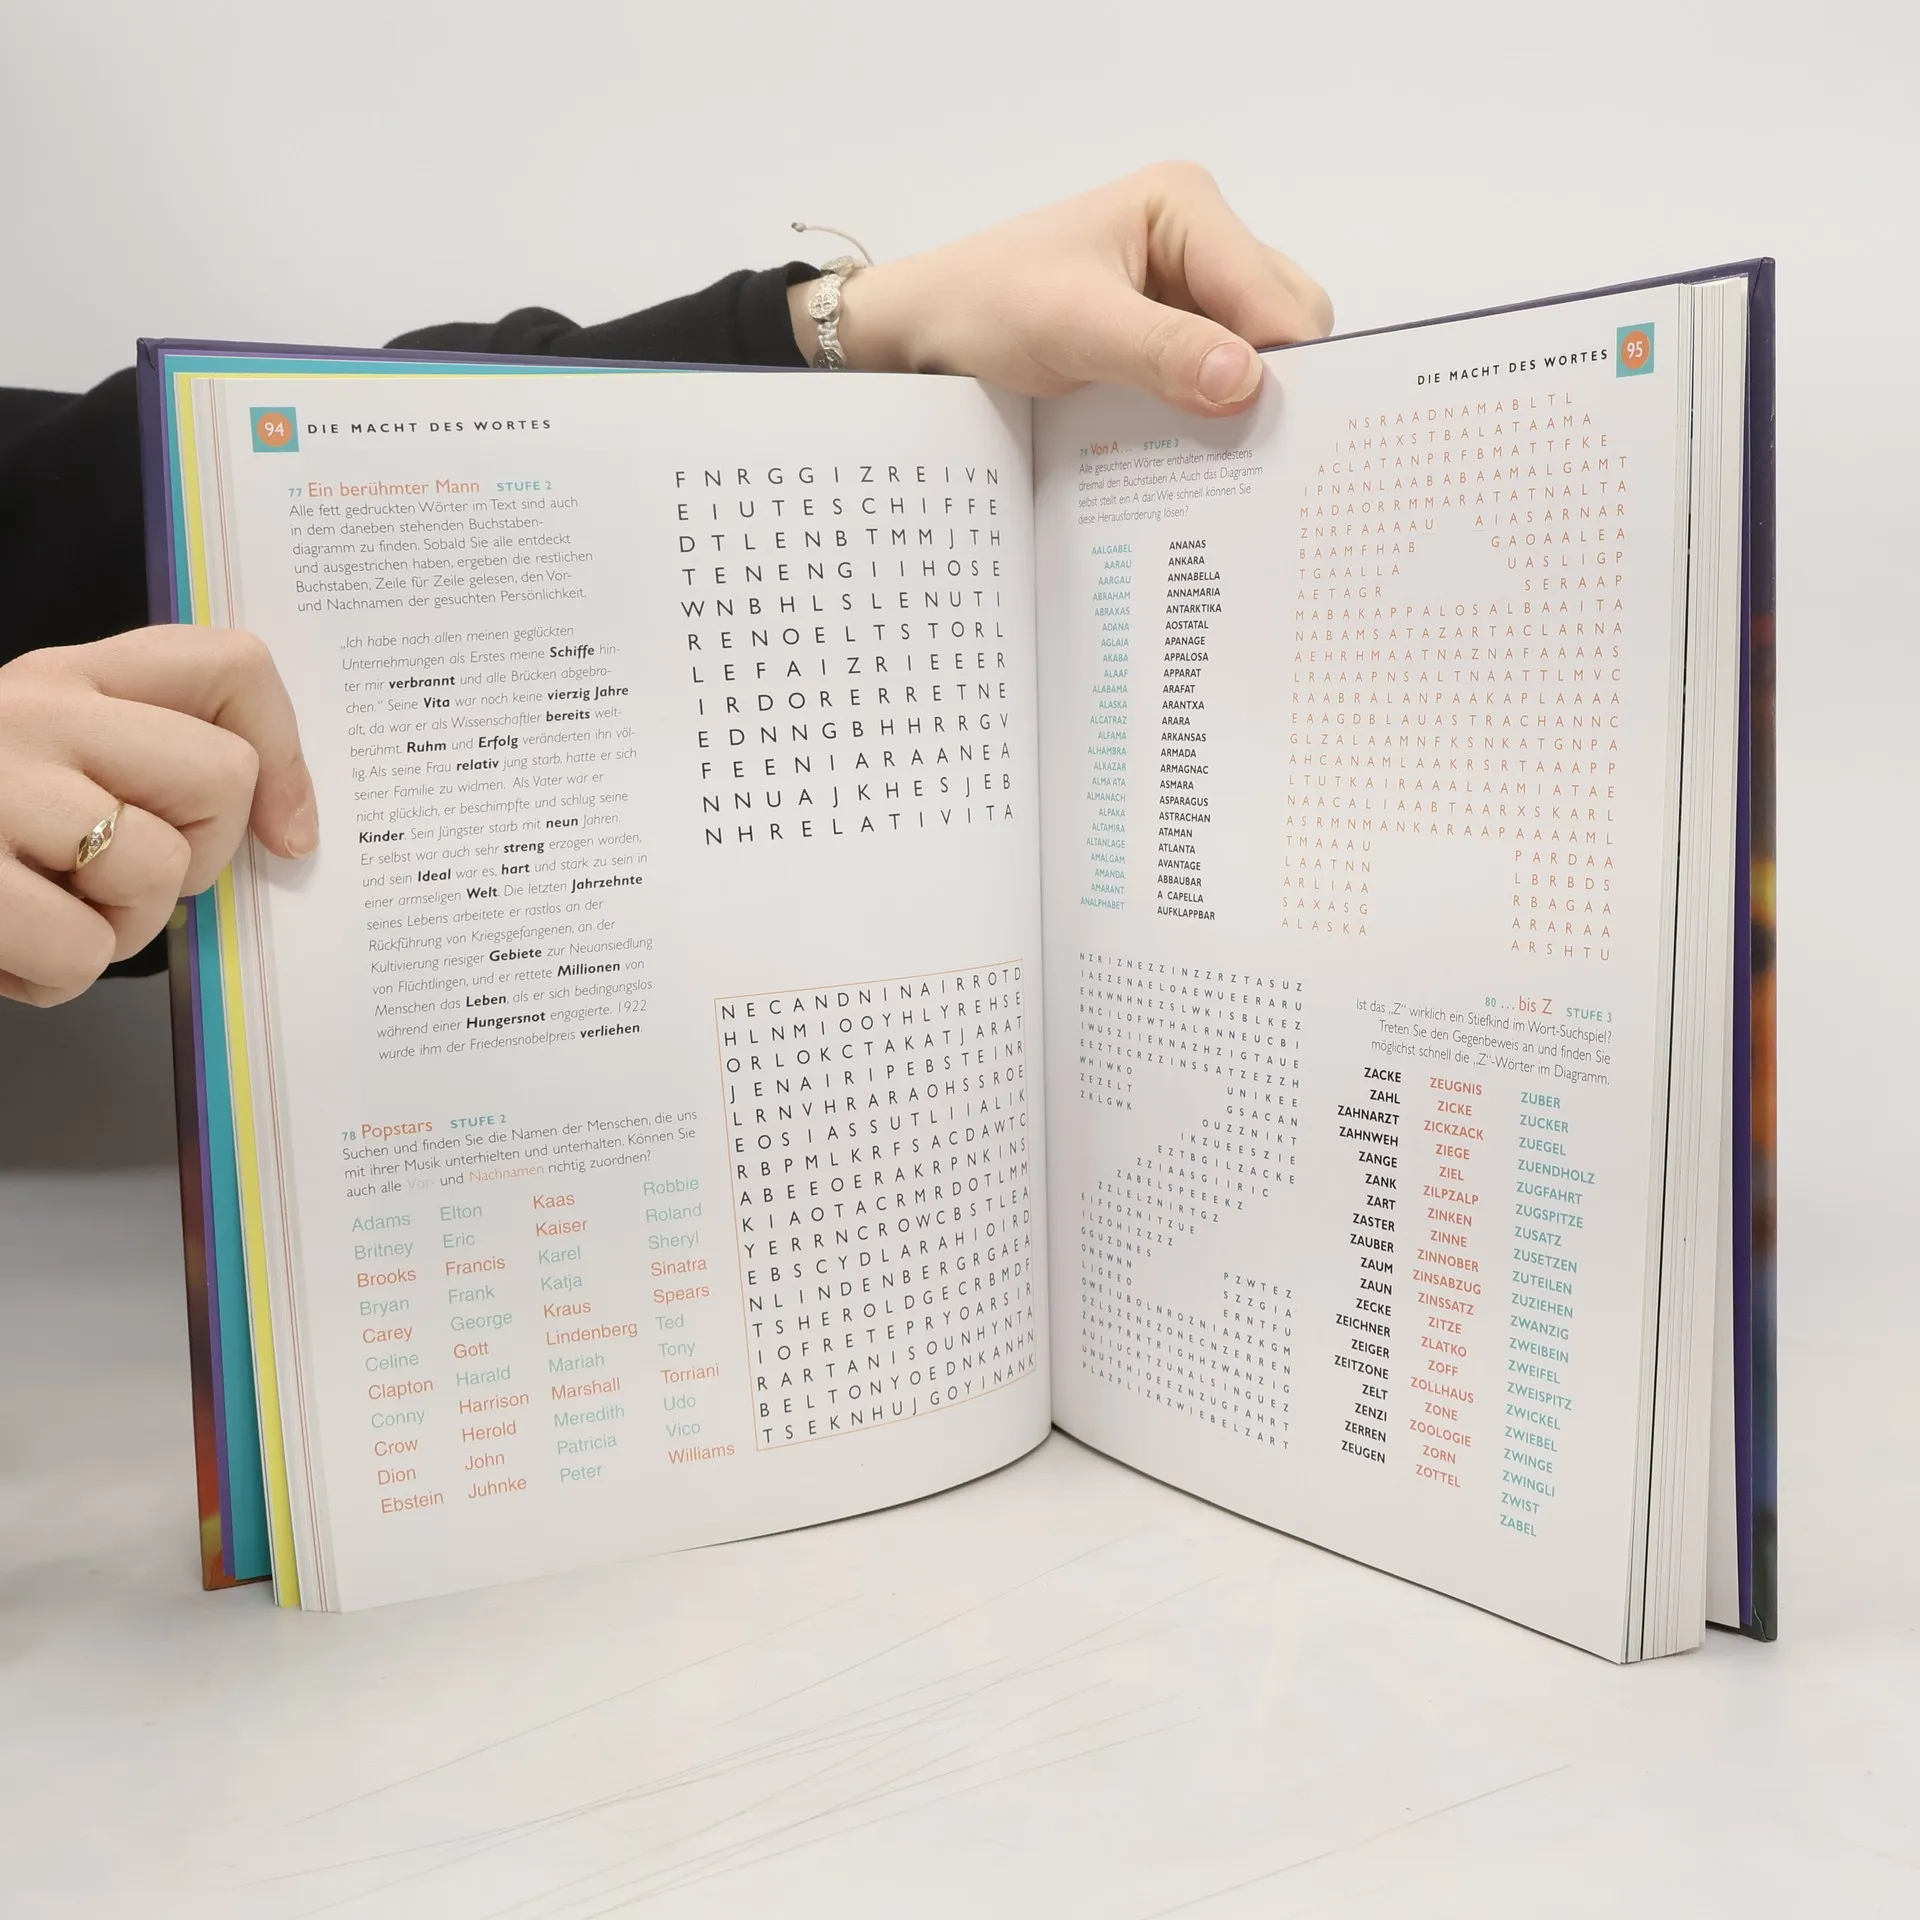 94 DIE MACHT DES WORTES
77 Ein berühmter Mann STUFE 2
Alle fett gedruckten Wörter im Text sind auch
in dem daneben stehenden Buchstaben-
diagramm zu finden. Sobald Sie alle entdeckt
und ausgestrichen haben, ergeben die restlichen
Buchstaben, Zeile für Zeile gelesen, den Vor-
und Nachnamen der gesuchten Persönlichkeit.
„Ich habe nach allen meinen geglückten
Unternehmungen als Erstes meine Schiffe hin-
ter mir verbrannt und alle Brücken abgebro-
chen." Seine Vita war noch keine vierzig Jahre
alt, da war er als Wissenschaftler bereits welt-
berühmt. Ruhm und Erfolg veränderten ihn völ-
lig. Als seine Frau relativ jung starb, hatte er sich
seiner Familie zu widmen. Als Vater war er
nicht glücklich, er beschimpfte und schlug seine
Kinder. Sein Jüngster starb mit neun Jahren.
Er selbst war auch sehr streng erzogen worden,
und sein Ideal war es, hart und stark zu sein in
einer armseligen Welt. Die letzten Jahrzehnte
seines Lebens arbeitete er rastlos an der
Rückführung von Kriegsgefangenen, an der
Kultivierung riesiger Gebiete zur Neuansiedlung
von Flüchtlingen, und er rettete Millionen von
Menschen das Leben, als er sich bedingungslos
während einer Hungersnot engagierte. 1922
wurde ihm der Friedensnobelpreis verliehen.
F N R G G I Z R E I V N
E I U T E S C H I F F E
D T L E N B T M M J T H
T E N E N G I I H O S E
W N B H L S L E N U T I
R E N O E L T S T O R L
L E F A I Z R I E E E R
I R D O R E R R E T N E
E D N N G B H H R R G V
F E E N I A R A A N E A
N N U A J K H E S J E B
N H R E L A T I V I T A
78 Popstars STUFE 2
Suchen und finden Sie die Namen der Menschen, die uns
mit ihrer Musik unterhielten und unterhalten. Können Sie
auch alle Vor- und Nachnamen richtig zuordnen?
Adams
Britney
Brooks
Bryan
Carey
Celine
Clapton
Conny
Crow
Dion
Ebstein
Elton
Eric
Francis
Frank
George
Gott
Harald
Harrison
Herold
John
Juhnke
Kaas
Kaiser
Karel
Katja
Kraus
Lindenberg
Mariah
Marshall
Meredith
Patricia
Peter
Robbie
Roland
Sheryl
Sinatra
Spears
Ted
Tony
Torriani
Udo
Vico
Williams
N E C A N D N I N A I R R O T D
H L N M I O O Y H L Y R E H S E
O R L O K C T A K A T J A R A T
J E N A I R I P E B S T E I N R
L R N V H R A R A O H S S R O E
E O S I A S S U T L I I A L I K
R B P M L K R F S A C D A W T C
A B E E O E R A K R P N K I N S
K I A O T A C R M R D O T L M M
Y E R R N C R O W C B S T L E A
E B S C Y D L A R A H I O I R D
N L I N D E N B E R G R G A E A
T S H E R O L D G E C R B M D F
I O F R E T E P R Y O A R S I R
R A R T A N I S O U N H Y N T A
B E L T O N Y O E D N K A N H N
T S E K N H U J G O Y I N A N K
DIE MACHT DES WORTES 95
79 Von A... STUFE 3
Alle gesuchten Wörter enthalten mindestens
dreimal den Buchstaben A. Auch das Diagramm
selbst stellt ein A dar. Wie schnell können Sie
diese Herausforderung lösen?
AALGABEL
AARAU
AARGAU
ABRAHAM
ABRAXAS
ADANA
AGLAIA
AKABA
ALAAF
ALABAMA
ALASKA
ALCATRAZ
ALFAMA
ALHAMBRA
ALKAZAR
ALMA ATA
ALMANACH
ALPAKA
ALTAMIRA
ALTANLAGE
AMALGAM
AMANDA
AMARANT
ANALPHABET
ANANAS
ANKARA
ANNABELLA
ANNAMARIA
ANTARKTIKA
AOSTATAL
APANAGE
APPALOSA
APPARAT
ARAFAT
ARANTXA
ARARA
ARKANSAS
ARMADA
ARMAGNAC
ASMARA
ASPARAGUS
ASTRACHAN
ATAMAN
ATLANTA
AVANTAGE
ABBAUBAR
A CAPELLA
AUFKLAPPBAR
N S R A A D N A M A B L T L
I A H A X S T B A L A T A A M A
A C L A T A N P R F B M A T T F K E
I P N A N L A A B A B A A M A L G A M T
M A D A O R R M M A R A T A T N A L T A
Z N R F A A A A U A I A S A R N A R
B A A M F H A B G A O A A L E A
T G A A L L A U A S L I G P
A E T A G R S E R A A P
M A B A K A P P A L O S A L B A A I T A
N A B A M S A T A Z A R T A C L A R N A
A E H R H M A A T N A Z N A F A A A A S
L R A A A P N S A L T N A A T T L M V C
R A A B R A L A N P A A K A P L A A A A
E A A G D B L A U A S T R A C H A N N C
G L Z A L A A M N F K S N K A T G N P A
A H C A N A M L A A K R S R T A A A P P
L T U T K A I R A A A L A A M I A T A E
N A A C A L I A A B T A A R X S K A R L
A S R M N M A N K A R A A P A A A A M L
T M A A A U P A R D A A
L A A T N N L B R B D S
A R L I A A R B A G A A
S A X A S G A R A R A A
A L A S K A A R S H T U
N Z R I Z N E Z Z I N Z Z R Z T A S U Z
I A E Z E N A E L O A E W U E E R A R U
E H K W N H N E Z S L W K I S B L K E Z
B N C I L O F W T H A L R N N E U C B I
I W U S Z I I E K N A Z H Z I G T A U E
E E Z T E C R Z Z I N S S A T Z E Z Z H
W H I W K O U N I K E E
Z E Z E L T G S A C A N
Z K L G W K O U Z Z N I K T
I K Z U E E S Z I E
E Z T B G I L Z A C K E
Z Z I A A S G I I R I C
Z A B E L S P E E E K Z
Z Z L E L Z N I R T G Z
E I F F O Z N I T Z U E
I L Z O H I Z Z Z Z
G G U Z D N E S
O N E W N N P Z W T E Z
L I G E E O S Z Z G I A
O W E I U B O L N R O Z N I A A Z K G M
E R N T F U
O Z L S Z E N E Z O N E C N Z E R R E N
Z A H P T R K T R I G H H Z W A N Z I G
A U I U C K T Z U N A L S I N G U E Z
U N U T E H I D E E Z N Z U G F A H R T
P L A Z P L I Z R Z W I E B E L Z A R T
80 ... bis Z STUFE 3
Ist das „Z" wirklich ein Stiefkind im Wort-Suchspiel?
Treten Sie den Gegenbeweis an und finden Sie
möglichst schnell die „Z"-Wörter im Diagramm.
ZACKE
ZAHL
ZAHNARZT
ZAHNWEH
ZANGE
ZANK
ZART
ZASTER
ZAUBER
ZAUM
ZAUN
ZECKE
ZEICHNER
ZEIGER
ZEITZONE
ZELT
ZENZI
ZERREN
ZEUGEN
ZEUGNIS
ZICKE
ZICKZACK
ZIEGE
ZIEL
ZILPZALP
ZINKEN
ZINNE
ZINNOBER
ZINSABZUG
ZINSSATZ
ZITZE
ZLATKO
ZOFF
ZOLLHAUS
ZONE
ZOOLOGIE
ZORN
ZOTTEL
ZUBER
ZUCKER
ZUEGEL
ZUENDHOLZ
ZUGFAHRT
ZUGSPITZE
ZUSATZ
ZUSETZEN
ZUTEILEN
ZUZIEHEN
ZWANZIG
ZWEIBEIN
ZWEIFEL
ZWEISPITZ
ZWICKEL
ZWIEBEL
ZWINGE
ZWINGLI
ZWIST
ZABEL